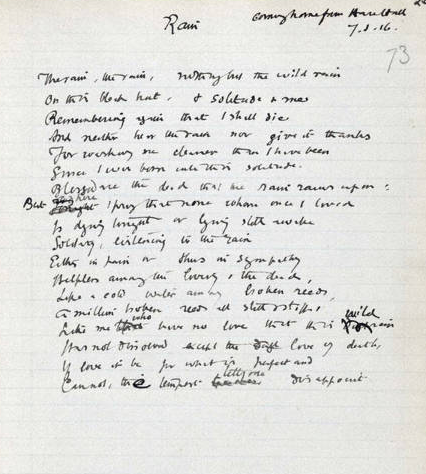 Coming home from Hare Hall
7.1.16.
Rain
73
The rain, the rain, nothing but the wild rain
On this bleak hut, & solitude & me
Remembering again that I shall die
And neither hear the rain nor give it thanks
For washing me cleaner than I have been
Since I was born into this solitude.
Blessed are the dead that the rain rains upon:
But here I pray that none whom once I loved
Is dying tonight or lying still awake
Solitary, listening to the rain
Either in pain or thus in sympathy
Helpless among the living & the dead,
Like a cold water among broken reeds,
A million broken reeds all still & stiff,
Like me who have no love that this wild rain
Has not dissolved except the love of death,
If love it be for what is perfect and
Cannot, the tempest tells me disappoint